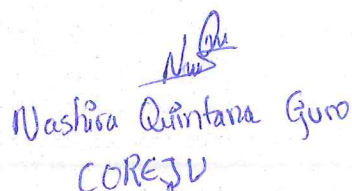 Nashira Quintana Guro
COREJU